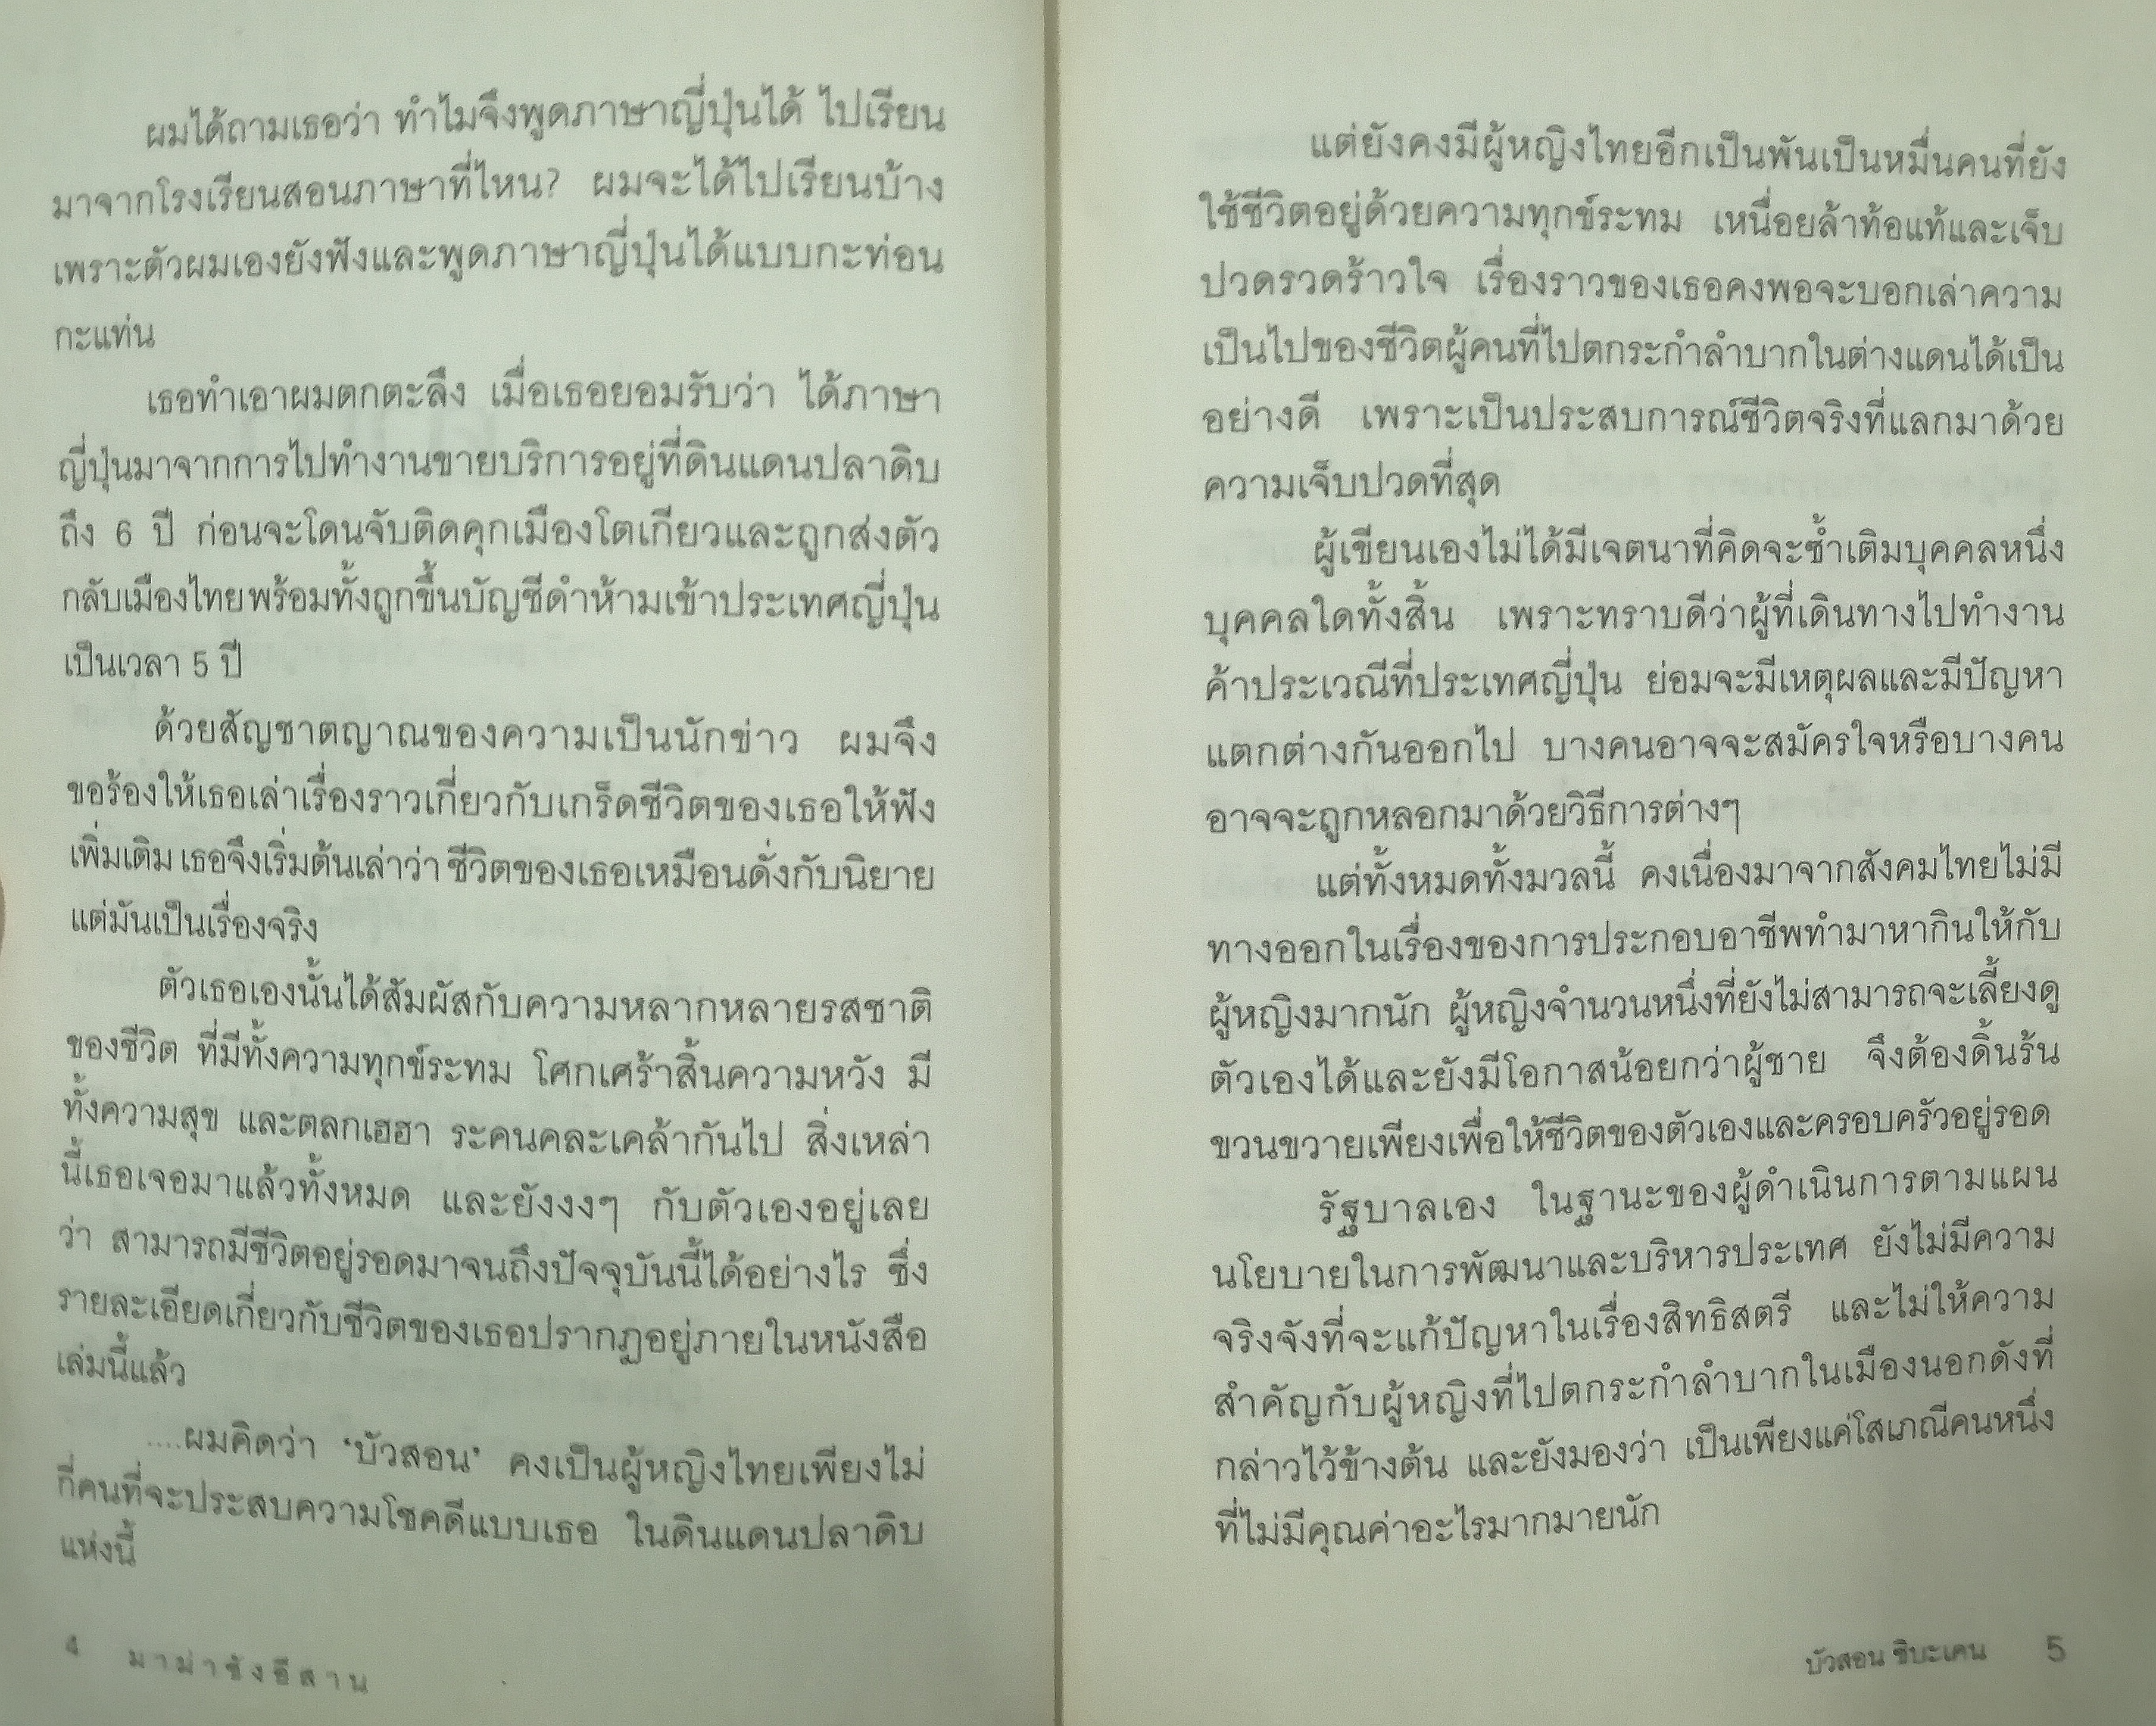 ผมได้ถามเธอว่า ทำไมจึงพูดภาษาญี่ปุ่นได้ ไปเรียน
มาจากโรงเรียนสอนภาษาที่ไหน? ผมจะได้ไปเรียนบ้าง
เพราะตัวผมเองยังฟังและพูดภาษาญี่ปุ่นได้แบบกะท่อน
กะแท่น
เธอทำเอาผมตกตะลึง เมื่อเธอยอมรับว่า ได้ภาษา
ญี่ปุ่นมาจากการไปทำงานขายบริการอยู่ที่ดินแดนปลาดิบ
ถึง 6 ปี ก่อนจะโดนจับติดคุกเมืองโตเกียวและถูกส่งตัว
กลับเมืองไทยพร้อมทั้งถูกขึ้นบัญชีดำห้ามเข้าประเทศญี่ปุ่น
เป็นเวลา 5 ปี
ด้วยสัญชาตญาณของความเป็นนักข่าว ผมจึง
ขอร้องให้เธอเล่าเรื่องราวเกี่ยวกับเกร็ดชีวิตของเธอให้ฟัง
เพิ่มเติม เธอจึงเริ่มต้นเล่าว่า ชีวิตของเธอเหมือนดั่งกับนิยาย
แต่มันเป็นเรื่องจริง
ตัวเธอเองนั้นได้สัมผัสกับความหลากหลายรสชาติ
ของชีวิต ที่มีทั้งความทุกข์ระทม โศกเศร้าสิ้นความหวัง มี
ทั้งความสุข และตลกเฮฮา ระคนคละเคล้ากันไป สิ่งเหล่า
นี้เธอเจอมาแล้วทั้งหมด และยังงงๆ กับตัวเองอยู่เลย
ว่า สามารถมีชีวิตอยู่รอดมาจนถึงปัจจุบันนี้ได้อย่างไร ซึ่ง
รายละเอียดเกี่ยวกับชีวิตของเธอปรากฏอยู่ภายในหนังสือ
เล่มนี้แล้ว
....ผมคิดว่า 'บัวสอน' คงเป็นผู้หญิงไทยเพียงไม่
กี่คนที่จะประสบความโชคดีแบบเธอ ในดินแดนปลาดิบ
แห่งนี้
4 มาม่าซังอีสาน
แต่ยังคงมีผู้หญิงไทยอีกเป็นพันเป็นหมื่นคนที่ยัง
ใช้ชีวิตอยู่ด้วยความทุกข์ระทม เหนื่อยล้าท้อแท้และเจ็บ
ปวดรวดร้าวใจ เรื่องราวของเธอคงพอจะบอกเล่าความ
เป็นไปของชีวิตผู้คนที่ไปตกระกำลำบากในต่างแดนได้เป็น
อย่างดี เพราะเป็นประสบการณ์ชีวิตจริงที่แลกมาด้วย
ความเจ็บปวดที่สุด
ผู้เขียนเองไม่ได้มีเจตนาที่คิดจะซ้ำเติมบุคคลหนึ่ง
บุคคลใดทั้งสิ้น เพราะทราบดีว่าผู้ที่เดินทางไปทำงาน
ค้าประเวณีที่ประเทศญี่ปุ่น ย่อมจะมีเหตุผลและมีปัญหา
แตกต่างกันออกไป บางคนอาจจะสมัครใจหรือบางคน
อาจจะถูกหลอกมาด้วยวิธีการต่างๆ
แต่ทั้งหมดทั้งมวลนี้ คงเนื่องมาจากสังคมไทยไม่มี
ทางออกในเรื่องของการประกอบอาชีพทำมาหากินให้กับ
ผู้หญิงมากนัก ผู้หญิงจำนวนหนึ่งที่ยังไม่สามารถจะเลี้ยงดู
ตัวเองได้และยังมีโอกาสน้อยกว่าผู้ชาย จึงต้องดิ้นร้น
ขวนขวายเพียงเพื่อให้ชีวิตของตัวเองและครอบครัวอยู่รอด
รัฐบาลเอง ในฐานะของผู้ดำเนินการตามแผน
นโยบายในการพัฒนาและบริหารประเทศ ยังไม่มีความ
จริงจังที่จะแก้ปัญหาในเรื่องสิทธิสตรี และไม่ให้ความ
สำคัญกับผู้หญิงที่ไปตกระกำลำบากในเมืองนอกดังที่
กล่าวไว้ข้างต้น และยังมองว่า เป็นเพียงแค่โสเภณีคนหนึ่ง
ที่ไม่มีคุณค่าอะไรมากมายนัก
บัวสอน ชิบะเคน 5